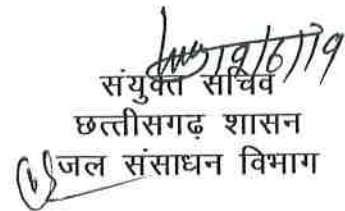 19/6/19
संयुक्त सचिव
छत्तीसगढ़ शासन
जल संसाधन विभाग